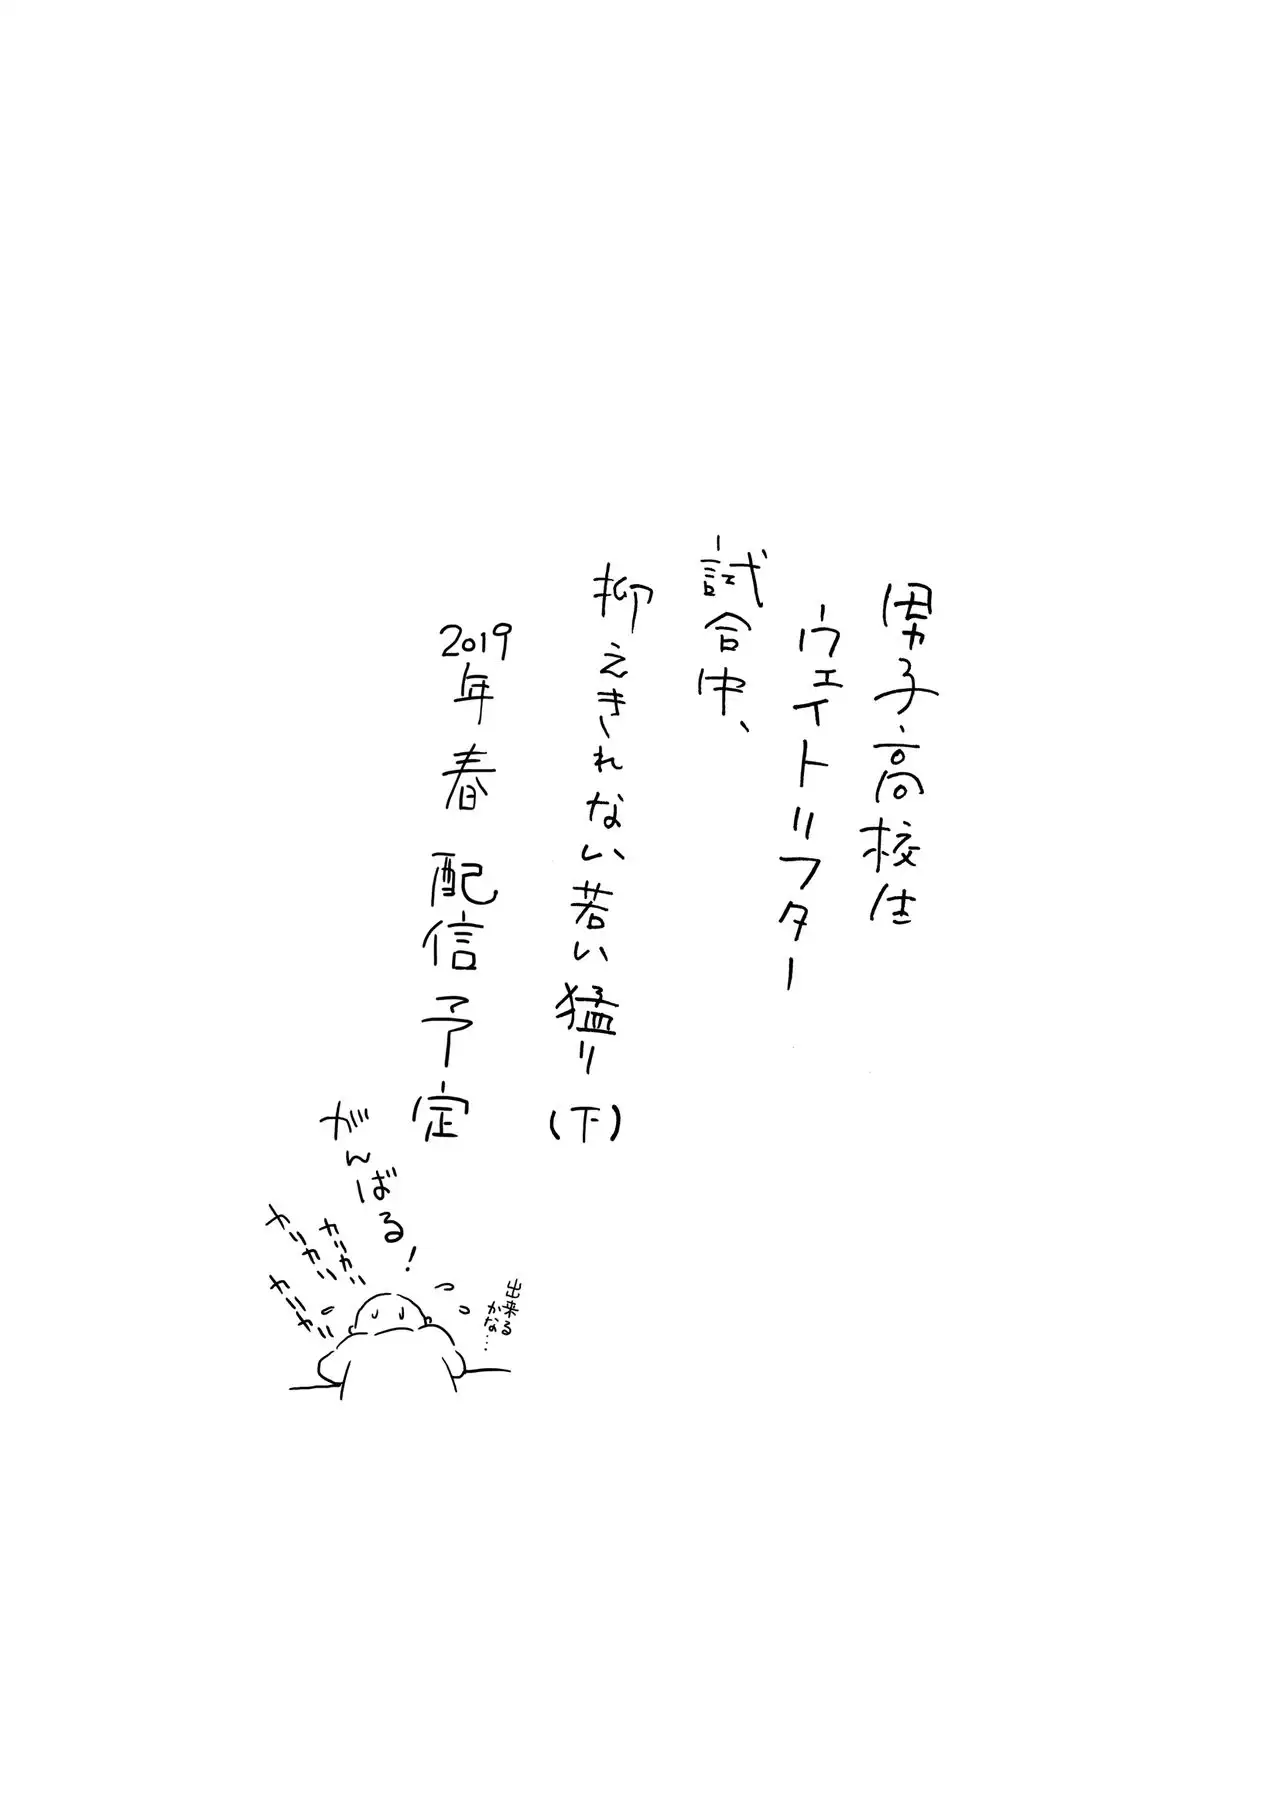 男子高校生
ウェイトリフター
試合中、
抑えきれない若い猛り(下)
2019年春 配信予定
がんばる!
カリカリ
カリカリ
カリカリ
出来る
かな…